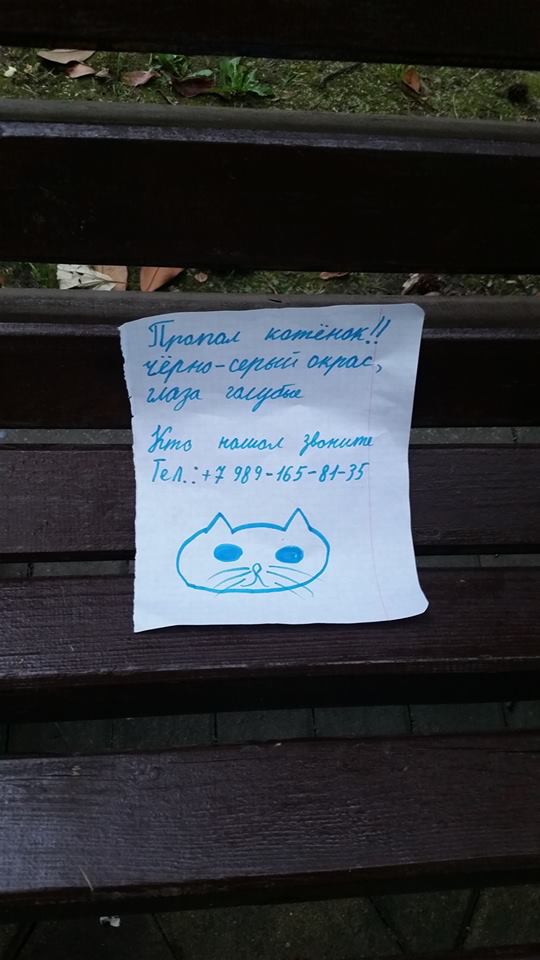 Пропал котёнок!!
чёрно-серый окрас,
глаза голубые
Кто нашол звоните
Тел.: +7 989-165-81-35